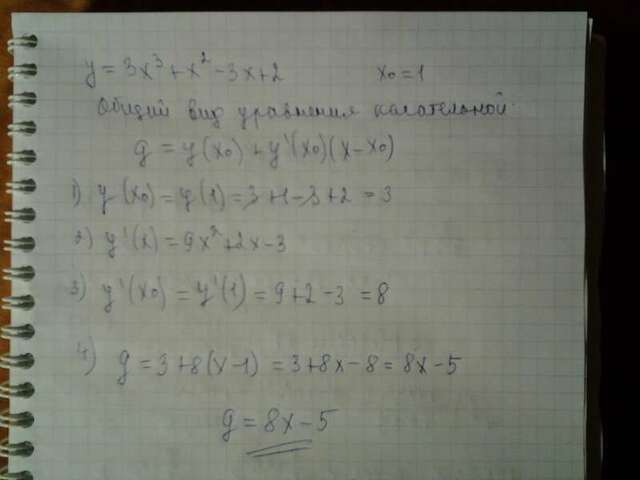 y = 3x³ + x² - 3x + 2 x₀ = 1
Общий вид уравнения касательной:
g = y(x₀) + y'(x₀)(x - x₀)
1) y(x₀) = y(1) = 3 + 1 - 3 + 2 = 3
2) y'(x) = 9x² + 2x - 3
3) y'(x₀) = y'(1) = 9 + 2 - 3 = 8
4) g = 3 + 8(x - 1) = 3 + 8x - 8 = 8x - 5
g = 8x - 5